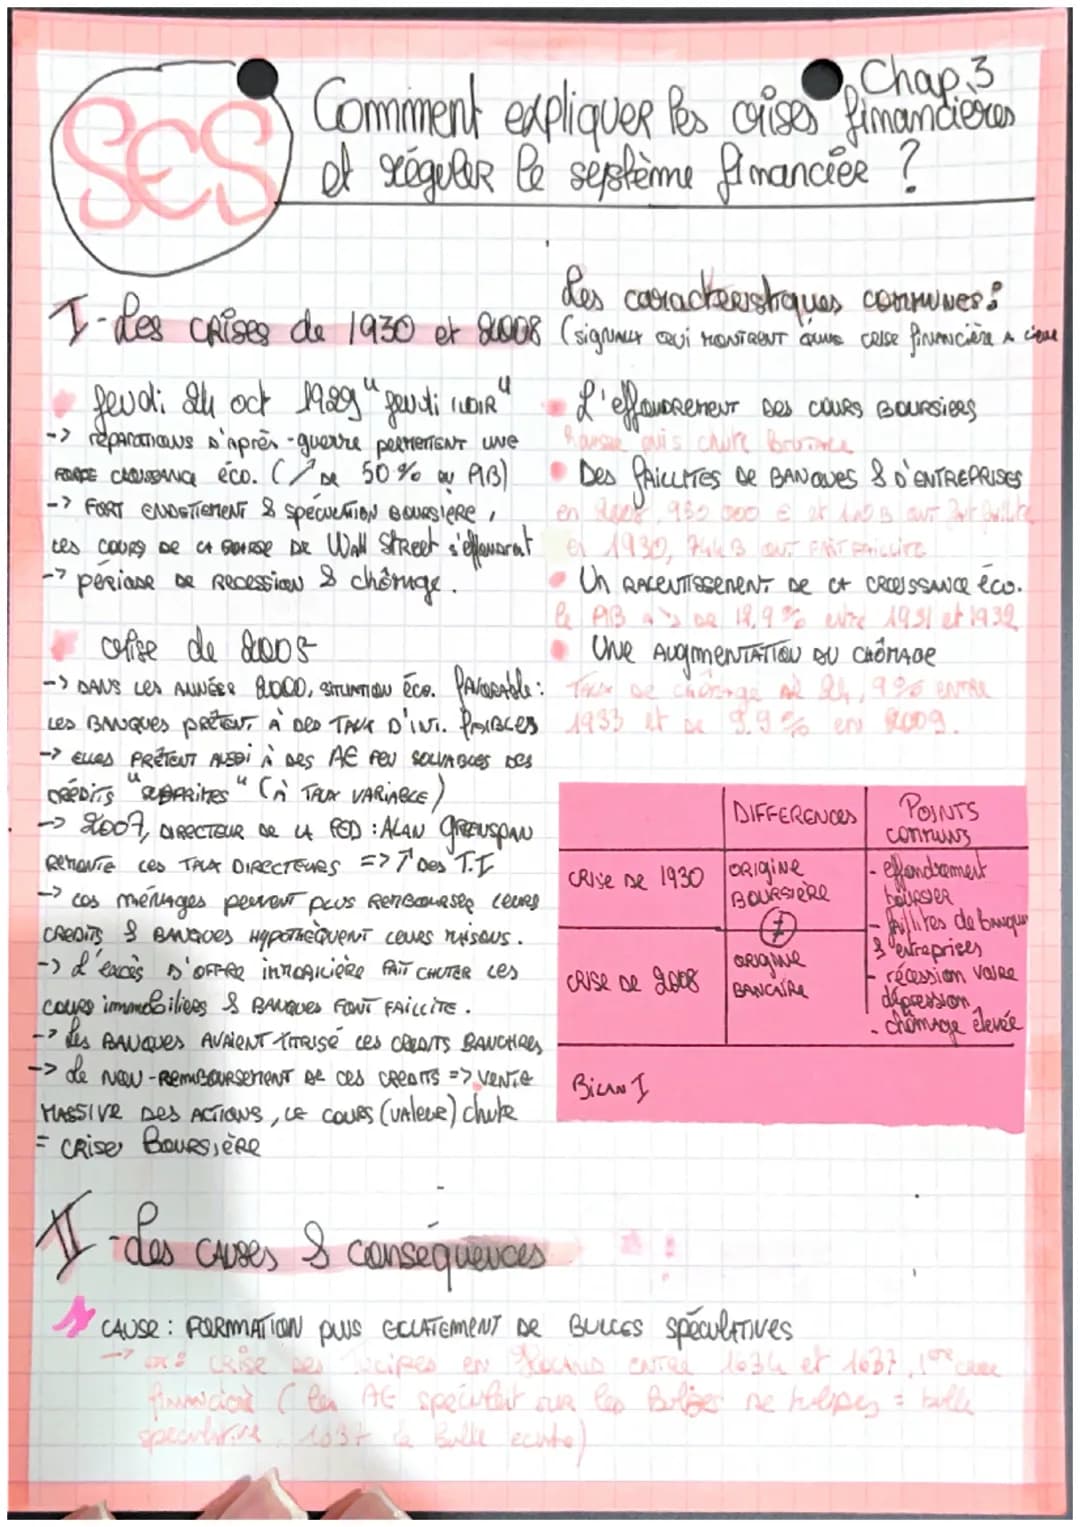 Chap.3
SES
Comment expliquer les crises financières
et réguler le système financier ?
I - Les crises de 1930 et 2008
Jeudi 24 oct 1929 "jeudi NOIR"
-> réparations d'après-guerre permettent une
forte croissance éco. (↗ de 50% du PIB)
-> Fort endettement & spéculation boursière,
les cours de la bourse de Wall Street s'effondrent
-> période de recession & chômage.
crise de 2008
-> Dans les années 2000, situation éco. favorable :
les banques prêtent, à des taux d'int. faibles
-> elles prêtent aussi à des AE peu solvables des
crédits "subprimes" (à taux variable)
-> 2007, directeur de la FED : Alan Greenspan
remonte les taux directeurs => ↑ des T.I
-> Les ménages peuvent plus rembourser leurs
credits & banques hypothèquent leurs maisons.
-> L'excès d'offre immobilière fait chuter les
cours immobiliers & banques font faillite.
-> Les banques avaient titrisé ces credits bancaires
-> Le non-remboursement de ces credits => vente
massive des actions, le cours (valeur) chute
= crise Boursière
Les caracteristiques communes :
(signaux qui montrent qu'une crise financière a lieu
L'effondrement des cours boursiers
puis chute
Des faillites de banques & d'entreprises
en 2008,
1930, faillite
Un ralentissement de la croissance éco.
le PIB a ↘ de entre 1931 et 1932
Une augmentation du chômage
Taux de chômage de 24,9% entre
1933 et de 9.9% en 2009.
DIFFERENCES
POINTS
communs
CRISE DE 1930
ORIGINE
BOURSIÈRE
≠
CRISE DE 2008
ORIGINE
BANCAIRE
- effondrement
boursier
- faillites de banques
& entreprises
- récession voire
dépression
- chômage élevée
Bilan I
II - Les causes & conséquences
CAUSE : FORMATION puis ECLATEMENT DE BULLES spéculatives
-> ex : crise des tulipes en entre 1634 et 1637, 1ère crise
financière (les AE spéculent sur les bulbes de tulipes = bulle
speculative, 1637 la bulle éclate)